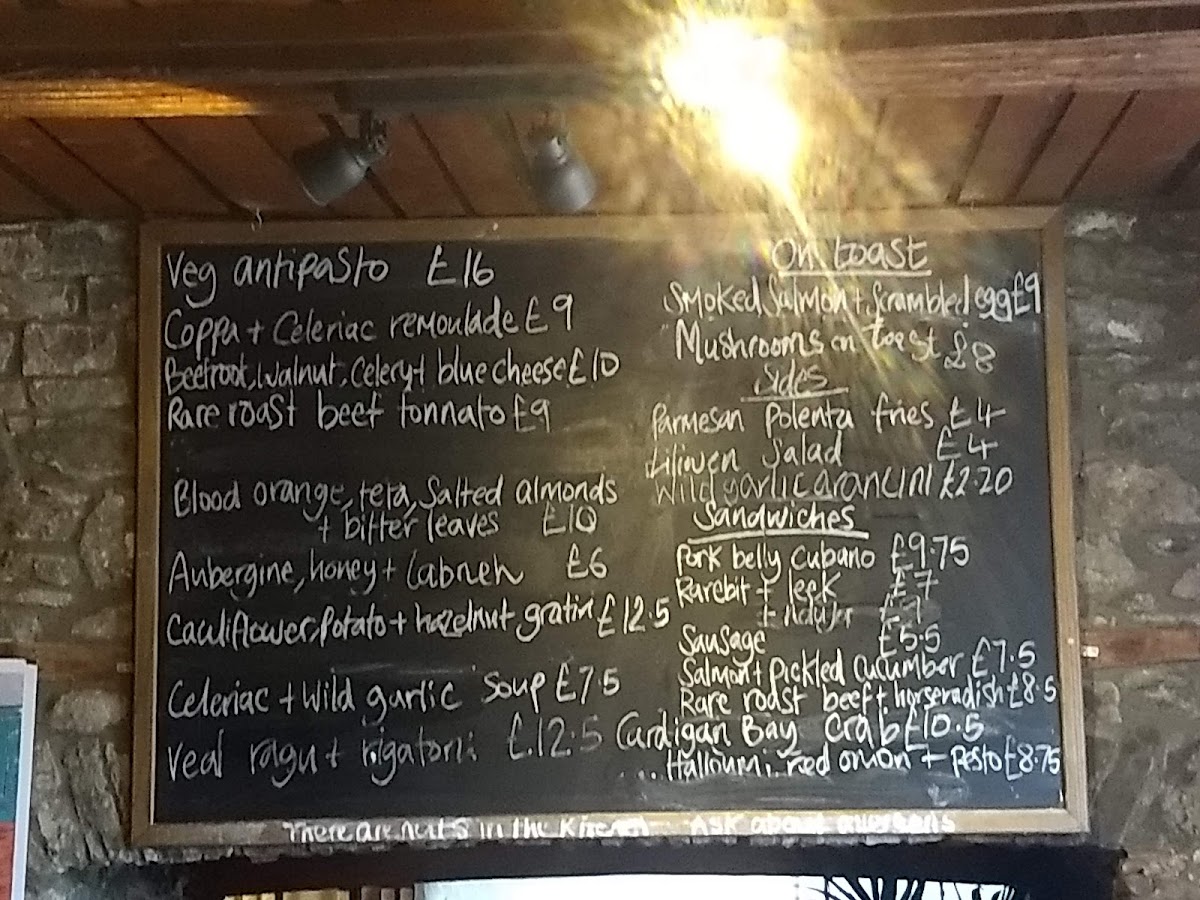 Veg antipasto £16
Coppa + Celeriac remoulade £9
Beetroot, walnut, Celery + blue cheese £10
Rare roast beef tonnato £9
Blood orange, feta, Salted almonds
+ bitter leaves £10
Aubergine, honey + labneh £6
Cauliflower, Potato + hazelnut gratin £12.5
Celeriac + Wild garlic Soup £7.5
Veal ragu + rigatoni £12.5
On toast
Smoked Salmon + Scrambled egg £9
Mushrooms on toast £8
Sides
Parmesan Polenta fries £4
Salad £4
Wild garlic arancini £2.20
Sandwiches
Pork belly Cubano £9.75
Rarebit + leek £7
+
Sausage £5.5
Salmon + Pickled cucumber £7.5
Rare roast beef + horseradish £8.5
Cardigan Bay Crab £10.5
Halloumi, red onion + Pesto £8.75
There are nuts in the Kitchen Ask about allergens